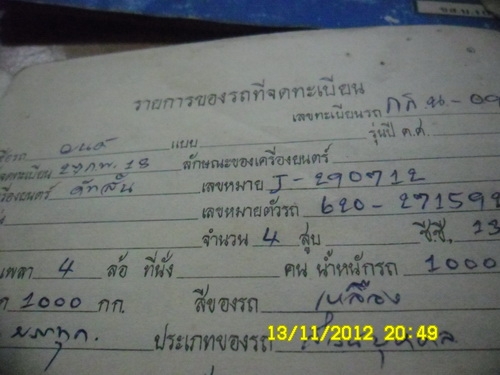 รายการของรถที่จดทะเบียน
เลขทะเบียนรถ
แบบ รุ่นปี ค.ศ.
จดทะเบียน 27 กพ. 13 ลักษณะของเครื่องยนต์
เครื่องยนต์ ดัทสัน เลขหมาย J-290712
เลขหมายตัวรถ 620-271592
จำนวน 4 สูบ ซี.ซี. 13
เพลา 4 ล้อ ที่นั่ง คน น้ำหนักรถ 1000
1000 กก. สีของรถ เหลือง
ประเภทของรถ
13/11/2012 20:49